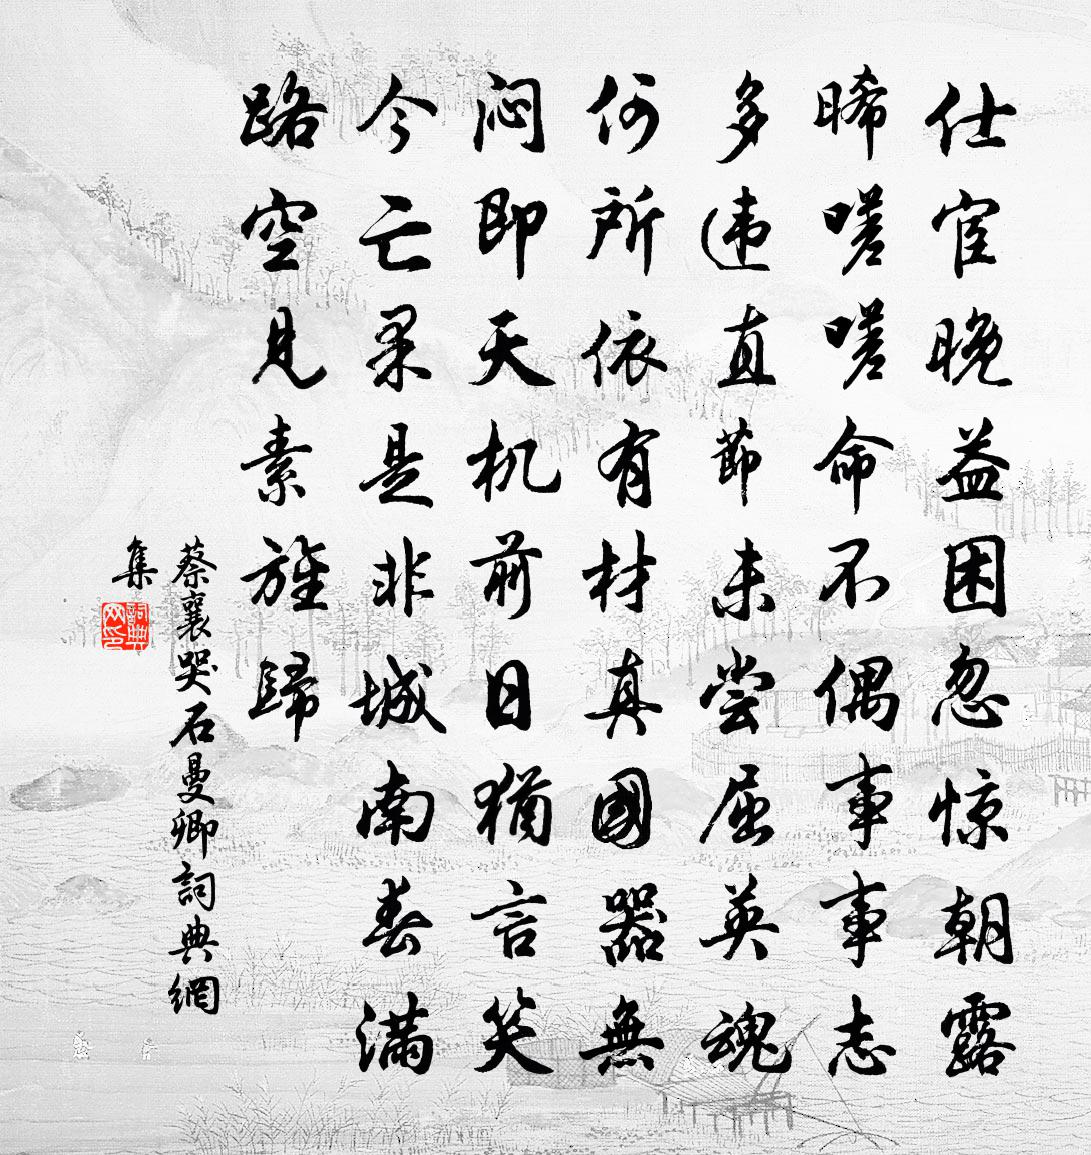 仕宦晚益困忽惊朝露
晞嗟嗟命不偶事事志
多违直節未尝屈英魂
何所依有材真國器無
闷即天机前日猶言笑
今亡果是非城南春满
路空見素旌歸
蔡襄哭石曼卿詞典網
集
詞典网印